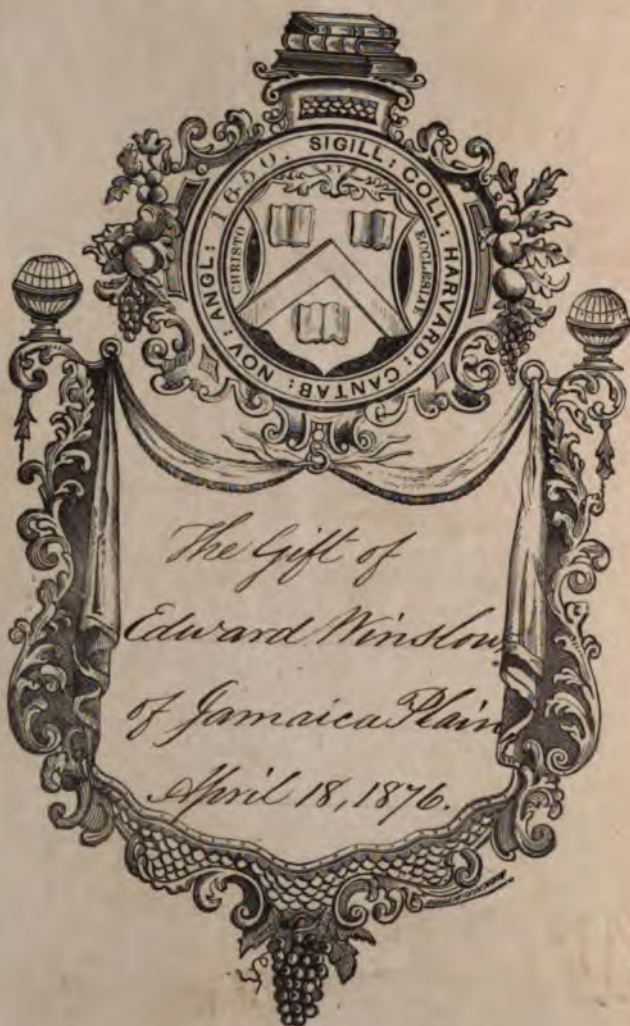 SIGILL: COLL: HARVARD: CANTAB: NOV: ANGL: 1650.
ET
CHRISTO
ECCLESIAE
The Gift of
Edward Winslow,
of Jamaica Plain
April 18, 1876.